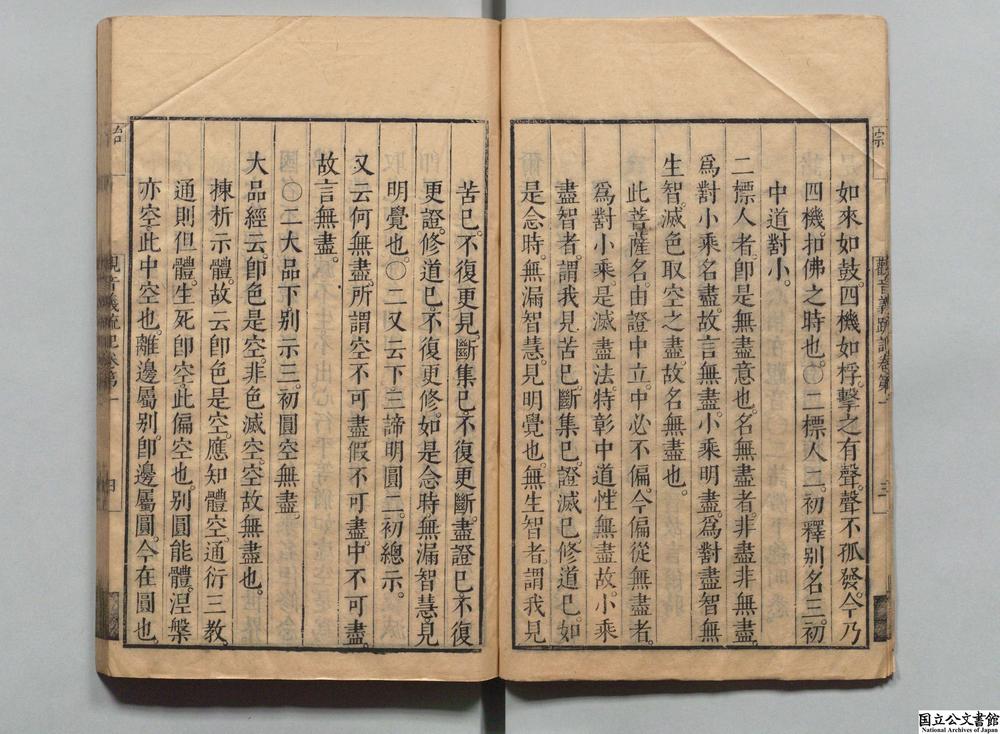 如來如鼓。四機如桴。擊之有聲。聲不孤發。今乃
四機扣佛之時也。〇二標人二。初釋別名三。初
中道對小。
二標人者。卽是無盡意也。名無盡者。非盡非無盡。
爲對小乘名盡。故言無盡。小乘明盡。爲對盡智無
生智。滅色取空之盡。故名無盡也。
此菩薩名。由證中立。中必不偏。今偏從無盡者。
爲對小乘是滅盡法。特彰中道性無盡故。小乘
盡智者。謂我見苦巳。斷集巳。證滅巳。修道巳。如
是念時。無漏智慧。見明覺也。無生智者。謂我見
苦巳。不復更見。斷集巳不復更斷。盡證巳不復
更證。修道巳。不復更修。如是念時。無漏智慧。見
明覺也。〇二又云下三諦明圓二。初總示。
又云何無盡。所謂空不可盡。假不可盡。中不可盡。
故言無盡。
〇二大品下別示三。初圓空無盡。
大品經云。卽色是空。非色滅空。空故無盡也。
揀析示體。故云卽色是空。應知體空。通衍三教。
通則但體。生死卽空。此偏空也。別圓能體。涅槃
亦空。此中空也。離邊屬別。卽邊屬圓。今在圓也。
國立公文書館
National Archives of Japan